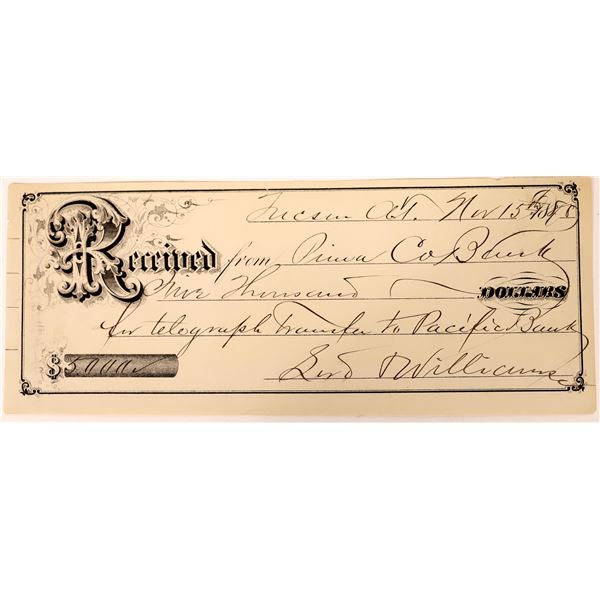 Tucson A.T. Nov 15th 1880
Received from Pima Co Bank
Five Thousand DOLLARS
for telegraph transfer to Pacific Bank
$ 5000
Lord & Williams